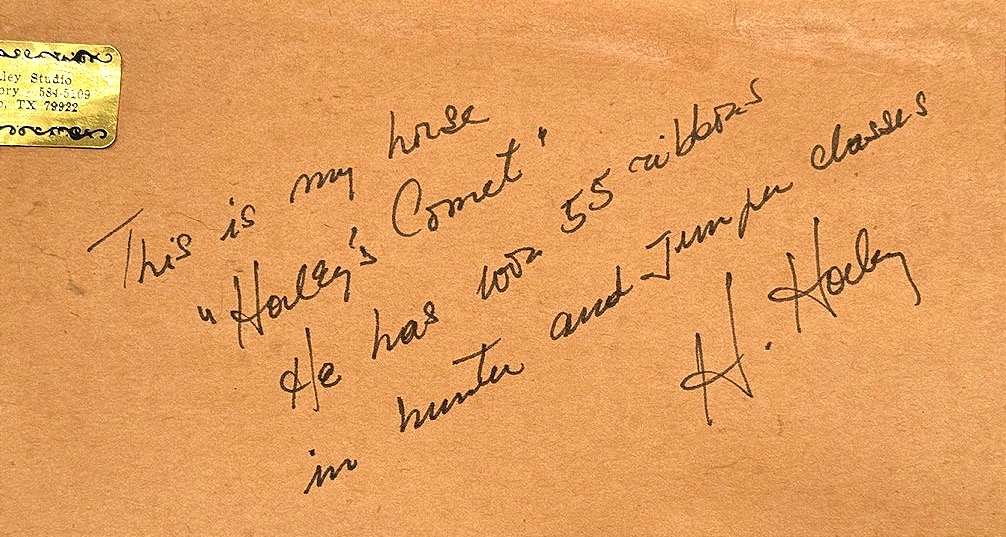 lley Studio
ory 584-5109
, TX 79922
This is my horse
"Halley's Comet"
He has won 55 ribbons
in hunter and Jumper classes
H. Halley